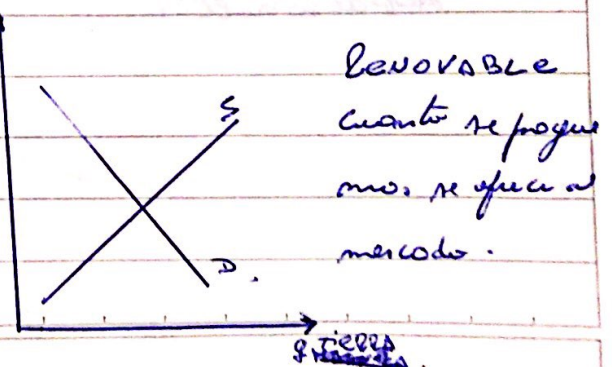 RENOVABLE
Cuanto se pague
mas se ofrece al
mercado.
S
D.
q TIERRA